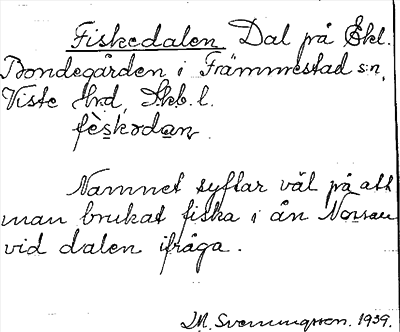 Fiskedalen Dal på Ekl.
Bondegården i Främmestad sn,
Viste Hrd, Skb. l.
fèskədan.
Namnet syftar väl på att
man brukat fiska i ån Nossan
vid dalen ifråga.
M. Svenningsson. 1939.